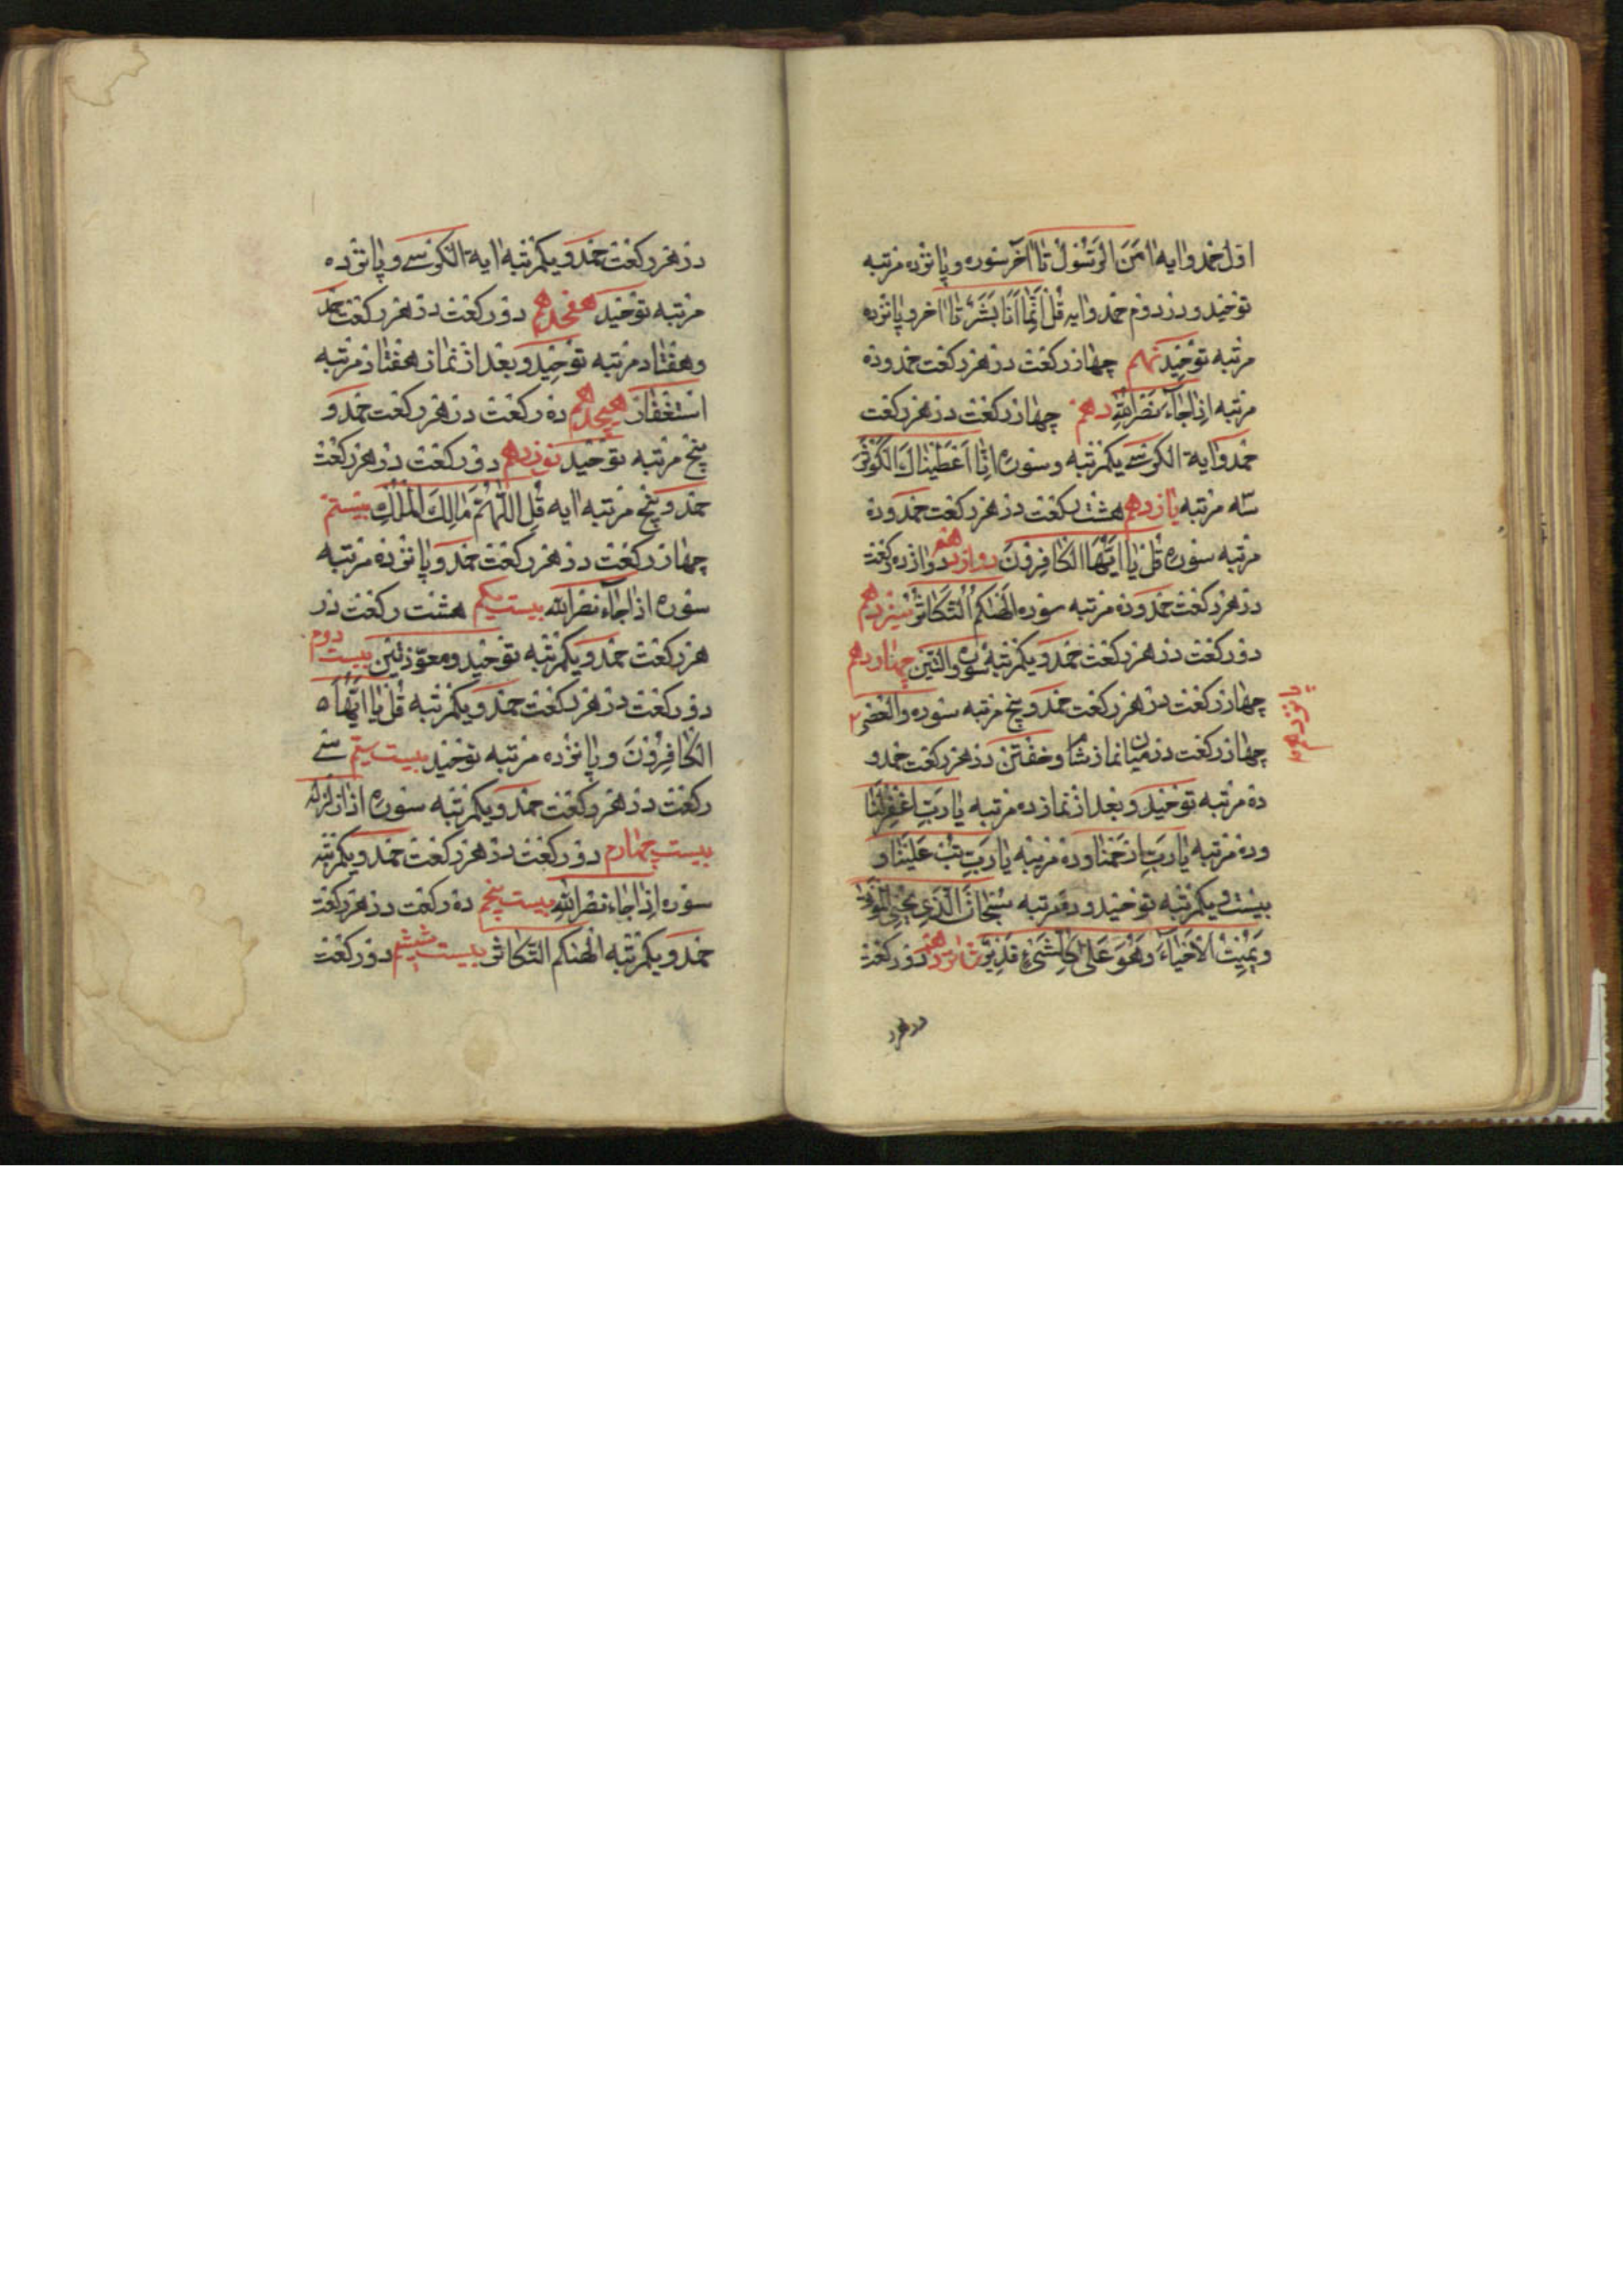 اول حمد و ایه امن الرسول تا آخر سوره و پانزده مرتبه
توحید و در دوم حمد و ایه قل انما انا بشر تا اخر و پانزده
مرتبه توحید نهم چهار رکعت در هر رکعت حمد و ده
مرتبه اذا جاء نصر الله دهم چهار رکعت در هر رکعت
حمد و ایة الکرسی یکمرتبه و سوره انا اعطیناک الکوثر
سه مرتبه یازدهم هشت رکعت در هر رکعت حمد و ده
مرتبه سوره قل یا ایها الکافرون دوازدهم دوازده رکعت
در هر رکعت حمد و ده مرتبه سوره الهیکم التکاثر سیزدهم
دو رکعت در هر رکعت حمد و یکمرتبه سوره والتین چهاردهم
چهار رکعت در هر رکعت حمد و پنج مرتبه سوره والعصر
پانزدهم
چهار رکعت در میان نماز شام و خفتن در هر رکعت حمد و
ده مرتبه توحید و بعد از نماز ده مرتبه یا رب اغفر لنا
و ده مرتبه یا رب ارحمنا و ده مرتبه یا رب تب علینا و
بیست و یکمرتبه توحید و ده مرتبه سبحان الذی یحیی الموتی
و یمیت الاحیاء و هو علی کل شیء قدیر شانزدهم دو رکعت
در هر ر
در هر رکعت حمد و یکمرتبه ایة الکرسی و پانزده
مرتبه توحید هفدهم دو رکعت در هر رکعت حمد
و هفتاد مرتبه توحید و بعد از نماز هفتاد مرتبه
استغفار هیجدهم ده رکعت در هر رکعت حمد و
پنج مرتبه توحید نوزدهم دو رکعت در هر رکعت
حمد و پنج مرتبه ایه قل اللهم مالک الملک بیستم
چهار رکعت در هر رکعت حمد و پانزده مرتبه
سوره اذا جاء نصر الله بیست یکم هشت رکعت در
هر رکعت حمد و یکمرتبه توحید و معوذتین بیست دوم
دو رکعت در هر رکعت حمد و یکمرتبه قل یا ایها
الکافرون و پانزده مرتبه توحید بیست سیم سی
رکعت در هر رکعت حمد و یکمرتبه سوره اذا زلزله
بیست چهارم دو رکعت در هر رکعت حمد و یکمرتبه
سوره اذا جاء نصر الله بیست پنجم ده رکعت در هر رکعت
حمد و یکمرتبه الهیکم التکاثر بیست ششم دو رکعت